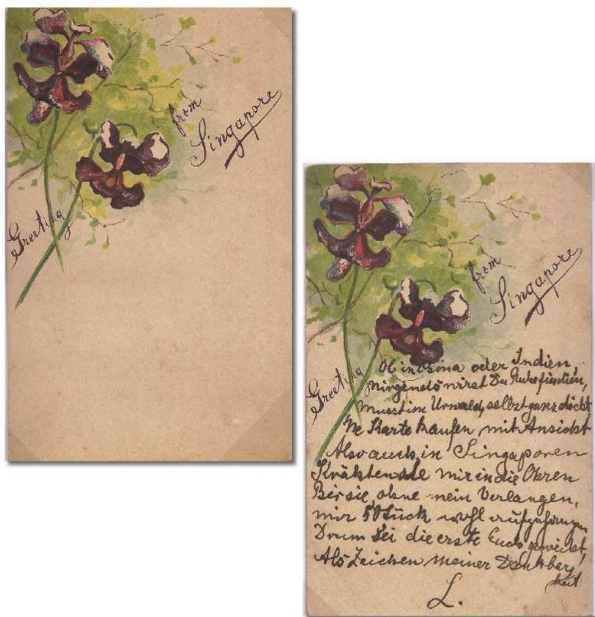 from
Singapore
Greeting
from
Singapore
Greeting
Ob in China oder Indien
Nirgends wirst Du Ruhe finden,
Musst im Urwald, selbst ganz dicht
'ne Karte kaufen mit Ansicht
Also auch in Singaporen
Krähten sie mir in die Ohren
Bis sie, ohne mein Verlangen,
mir 50 Stück wohl aufgehangen
Drum sei die erste Euch geweiht,
Als Zeichen meiner Dankbar
keit
L.